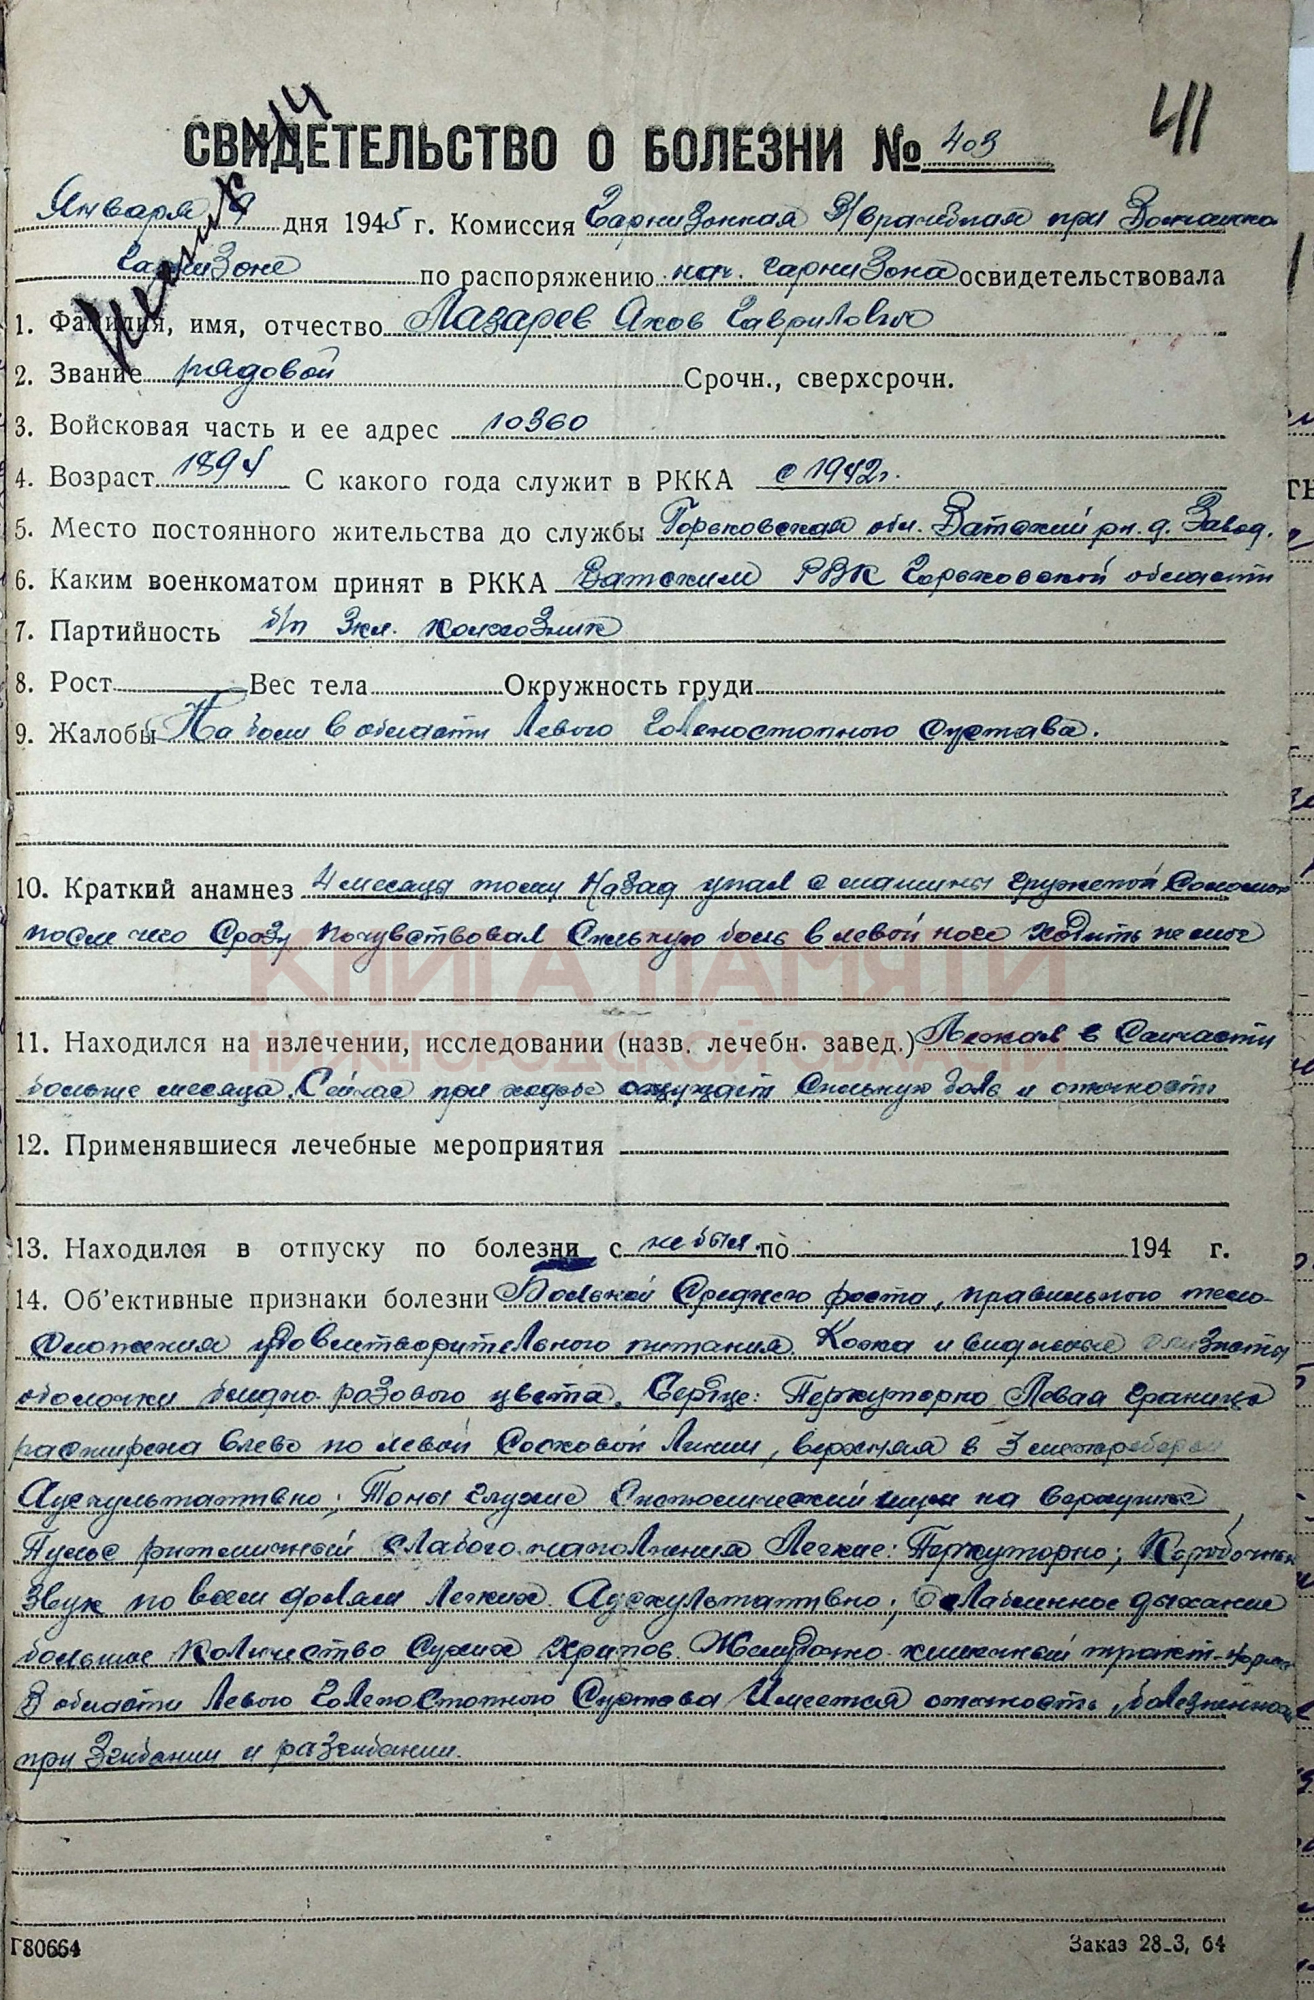 СВИДЕТЕЛЬСТВО О БОЛЕЗНИ № 403
411
Января 9 дня 1945 г. Комиссия Гарнизонная В/врачебная при
Гарнизоне по распоряжению нач. гарнизона освидетельствовала
1. Фамилия, имя, отчество Лазарев Яков Гаврилович
2. Звание рядовой Срочн., сверхсрочн.
3. Войсковая часть и ее адрес 10360
4. Возраст 1894 С какого года служит в РККА с 1942 г.
5. Место постоянного жительства до службы Горьковская обл. Ватский рн. д. Завод.
6. Каким военкоматом принят в РККА Ватским РВК Горьковской области
7. Партийность б/п 3 кл. колхозник
8. Рост Вес тела Окружность груди
9. Жалобы На боли в области левого голеностопного сустава.
10. Краткий анамнез 4 месяца тому назад упал с машины груженой соломой
после чего сразу почувствовал сильную боль в левой ноге ходить не мог
КНИГА ПАМЯТИ
НИЖЕГОРОДСКОЙ ОБЛАСТИ
11. Находился на излечении, исследовании (назв. лечебн. завед.) Лежал в Санчасти
больше месяца. Сейчас при ходьбе ощущает сильную боль и отечность
12. Применявшиеся лечебные мероприятия
13. Находился в отпуску по болезни с не был по 194 г.
14. Об'ективные признаки болезни Больной среднего роста, правильного тело-
сложения удовлетворительного питания. Кожа и видимые слизистые
оболочки бледно-розового цвета. Сердце: Перкуторно левая граница
расширена влево по левой сосковой линии, верхняя в 3 межреберьи
Аускультативно; Тоны глухие Систолический шум на верхушке
Пульс ритмичный слабого наполнения Легкие: Перкуторно; Коробочный
звук по всем долям легких. Аускультативно; ослабленное дыхание
большое количество сухих хрипов. Желудочно-кишечный тракт-норма
В области левого голеностопного сустава имеется отечность, болезненность
при сгибании и разгибании.
Г80664
Заказ 28-3, 64